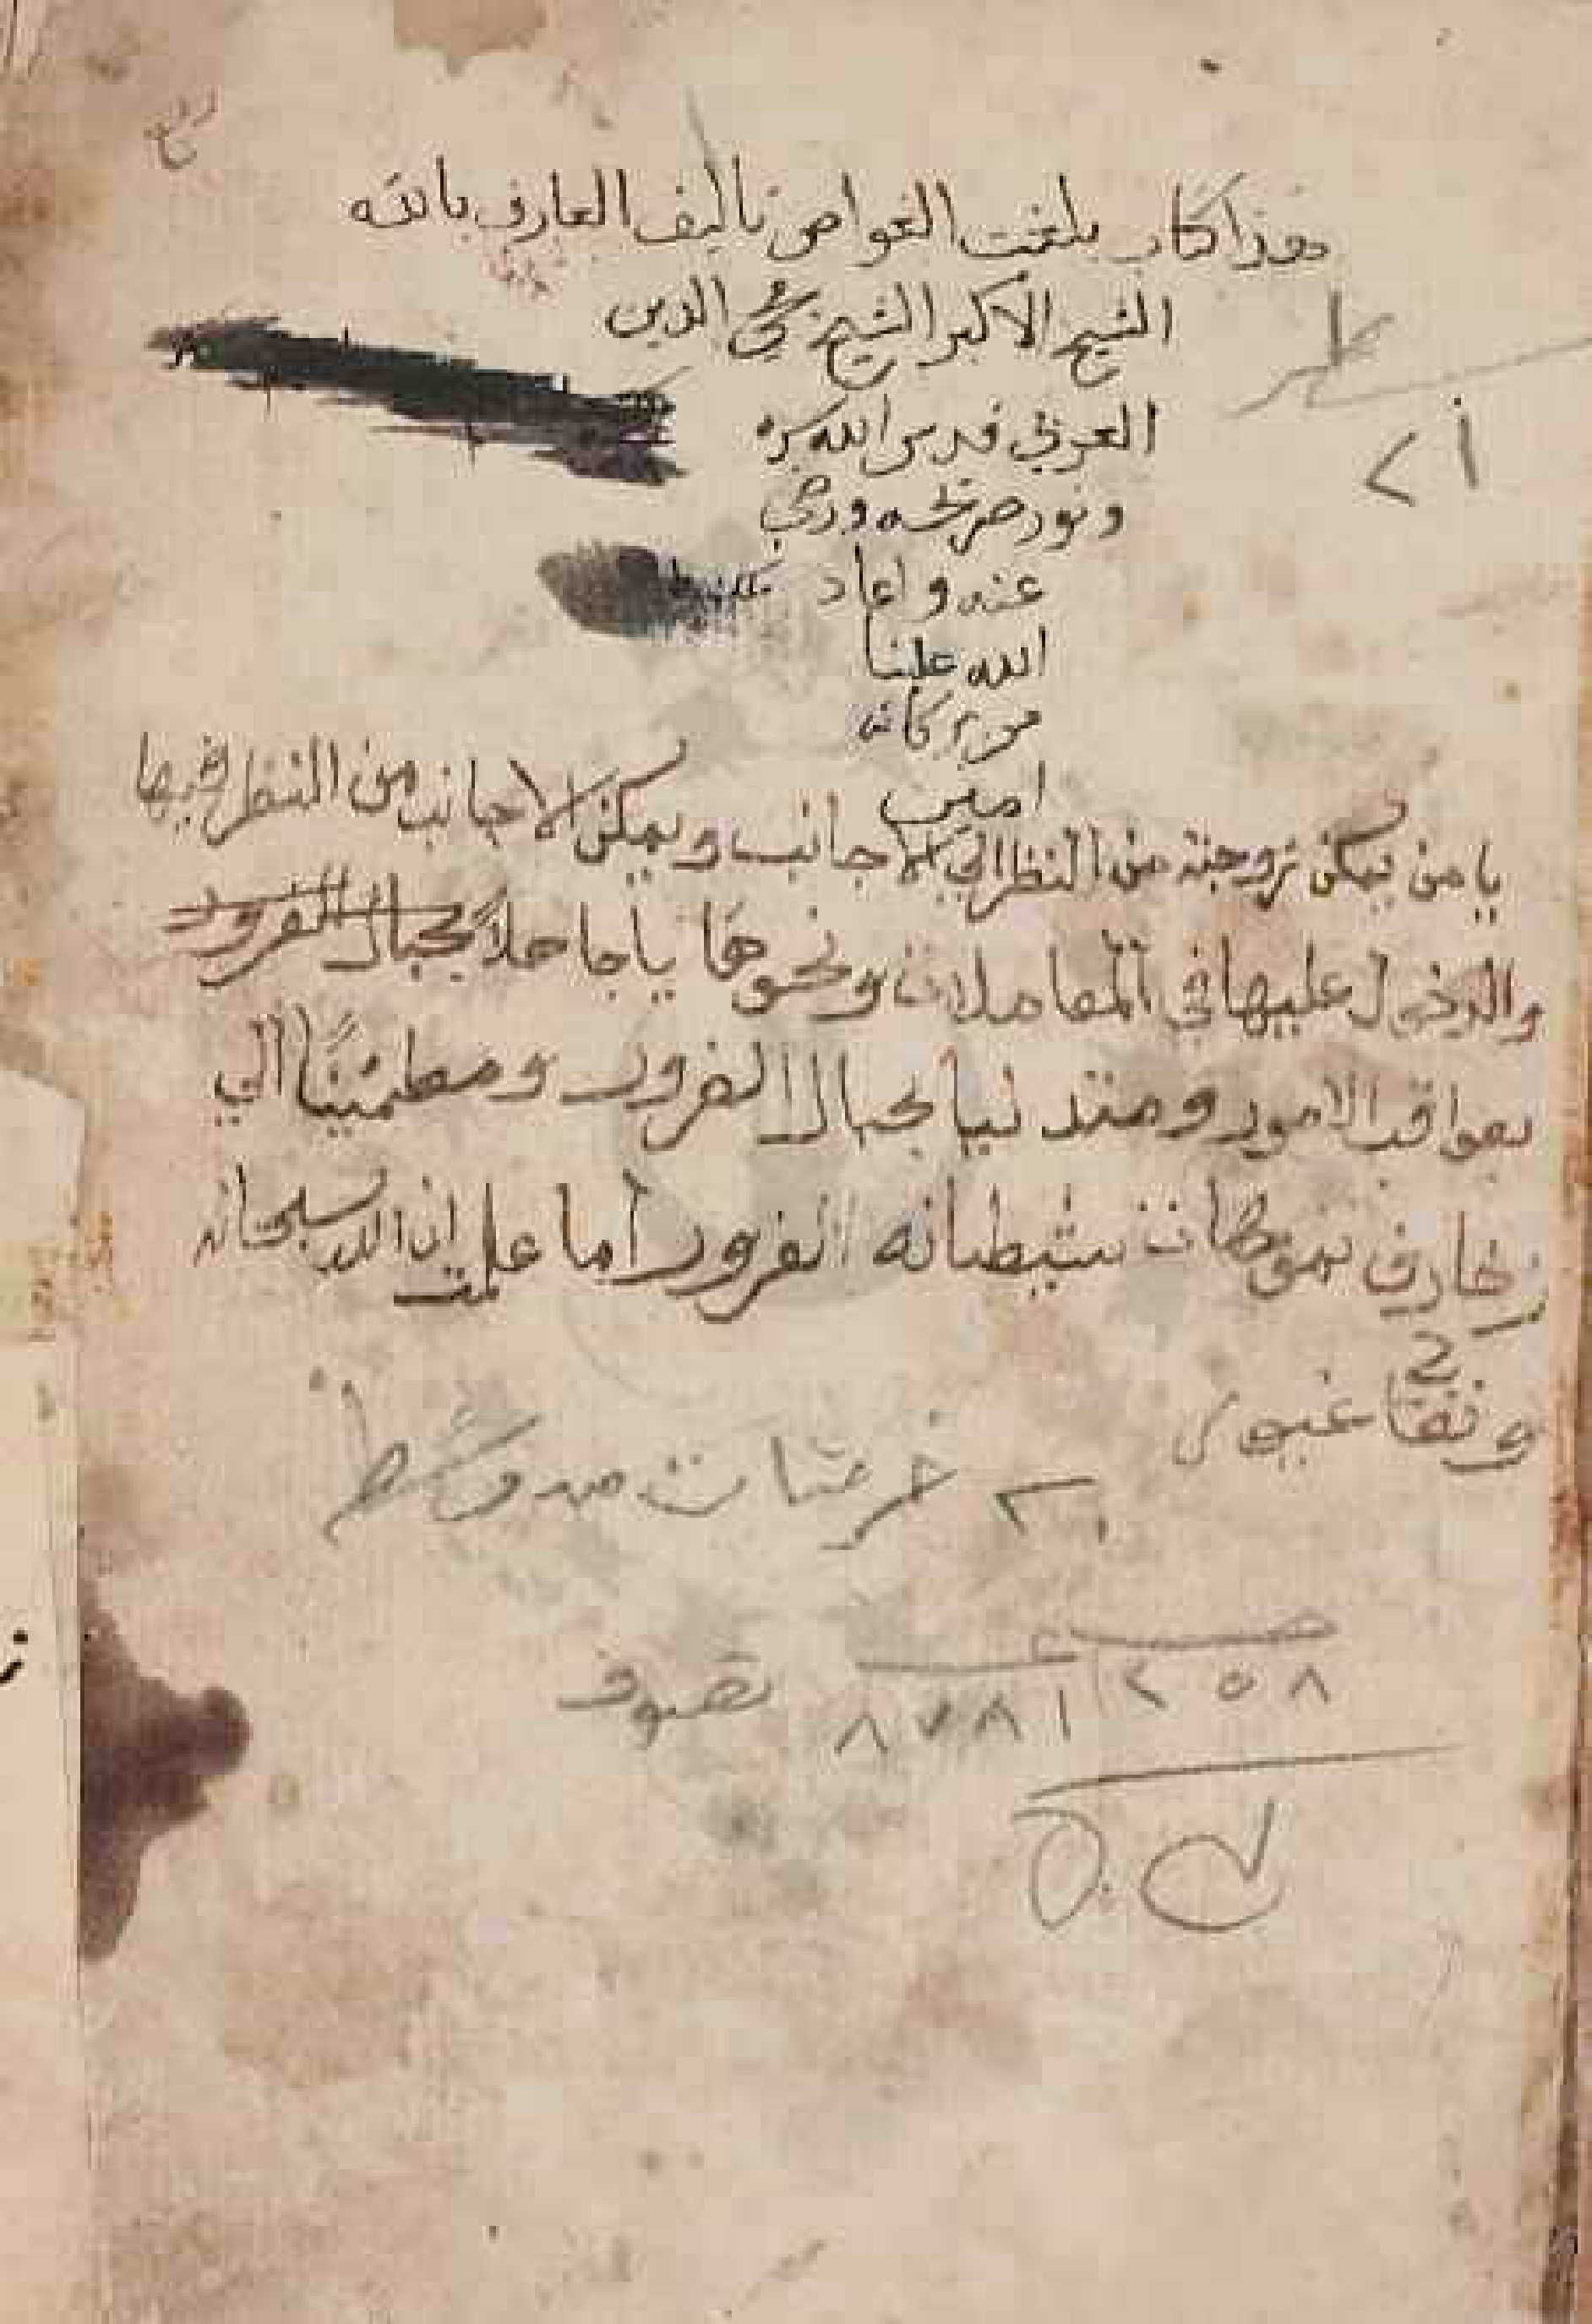 هذا كتاب بلغت الغواص تاليف العارف بالله
الشيخ الاكبر الشيخ محي الدين
العربي قدس الله سره
ونور ضريحه ورضي
عنه واعاد
الله علينا
من بركاته
امين
يا من يمكن زوجته من النظر الي الاجانب ويمكن الاجانب من النظر فيها
والدخول عليها في المعاملات ونحوها يا جاهلاً بحبال الغرور
بعواقب الامور ومتدليا بحبال الغرور ومطمئنًا الي
زخارف تموهات شيطانه الغرور اما علمت ان الله سبحانه
و
٢١
٢٥٨
٨٧٨١
تصوف